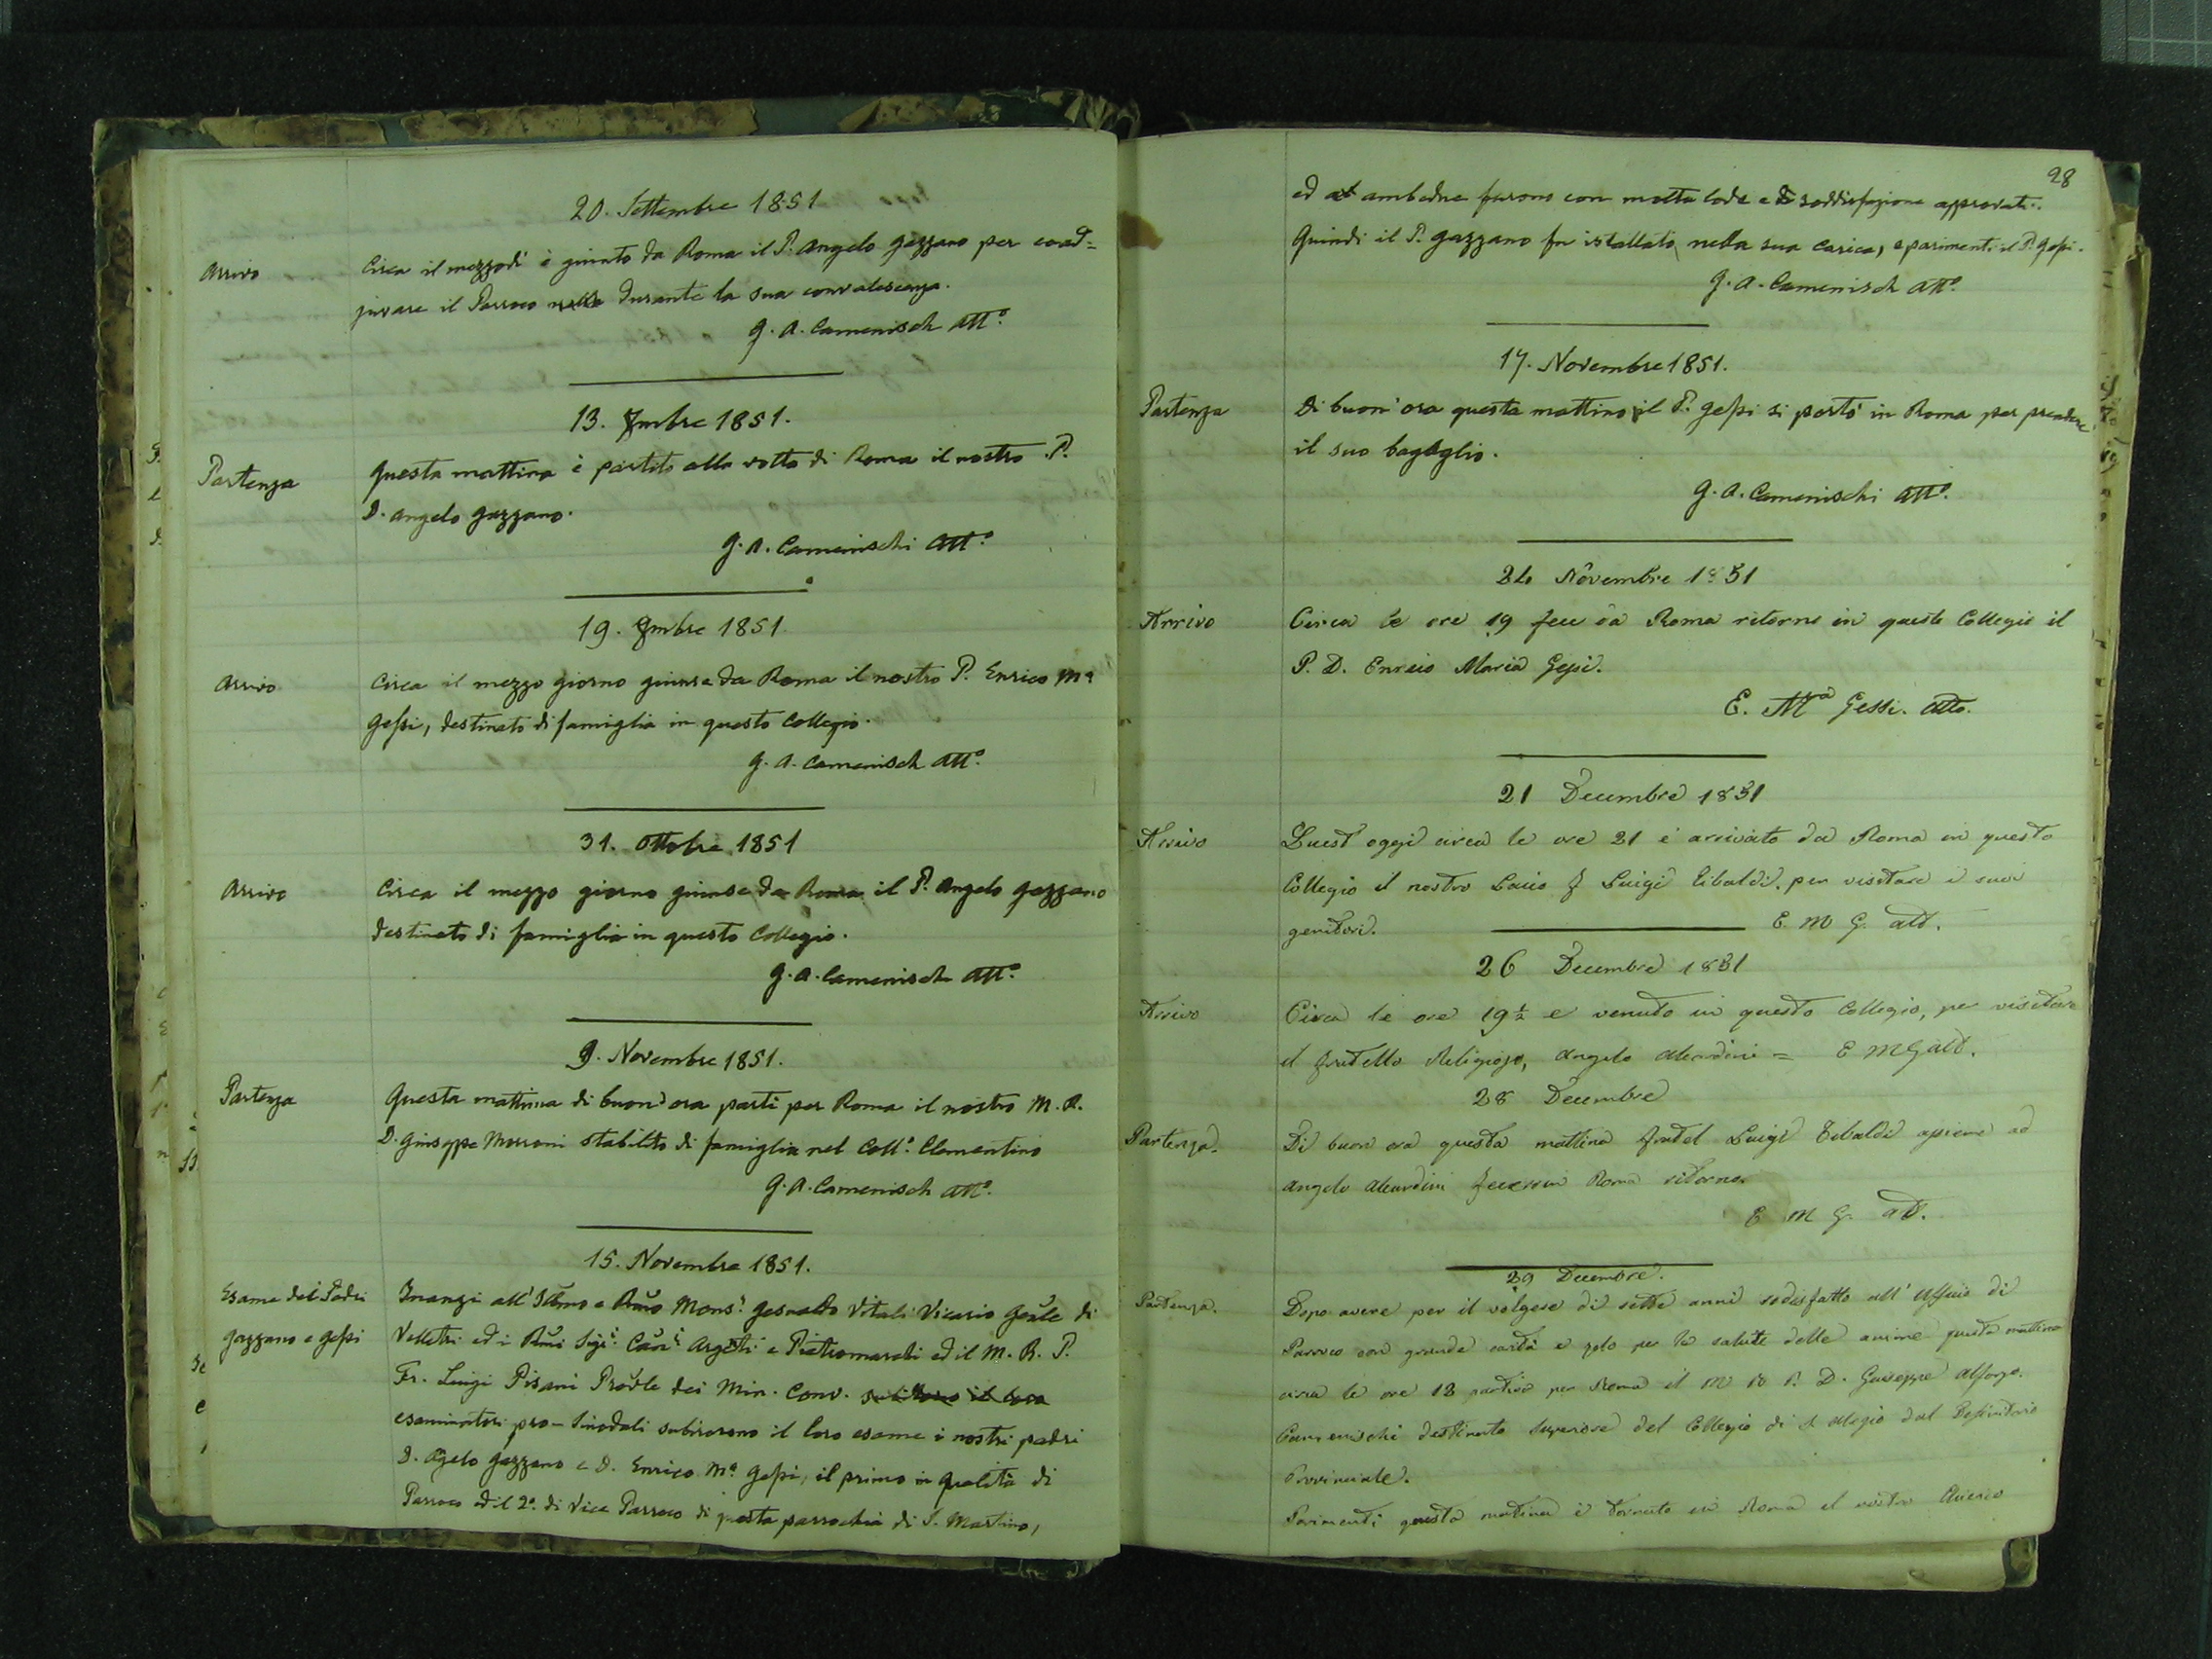 20. Settembre 1851
Arrivo
Circa il mezzodì è giunto da Roma il P. Angelo Gazzano per coad=
juvare il Parroco nella durante la sua convalescenza.
G. A. Camenisch Att.º
13. 7mbre 1851.
Partenza
Questa mattina è partito alla volta di Roma il nostro P.
D. Angelo Gazzano.
G. A. Camenischi Att.º
19. 8mbre 1851
Arrivo
Circa il mezzo giorno giunse da Roma il nostro P. Enrico Mª
Gessi, destinato di famiglia in questo Collegio.
G. A. Camenisch Att.º
31. Ottobre 1851
Arrivo
Circa il mezzo giorno giunse da Roma il P. Angelo Gazzano
destinato di famiglia in questo Collegio.
G. A. Camenisch Att.º
9. Novembre 1851.
Partenza
Questa mattina di buon'ora partì per Roma il nostro M. R.
D. Giuseppe Marconi stabilito di famiglia nel Coll.º Clementino
G. A. Camenisch Att.º
15. Novembre 1851.
Esame dei Padri
Gazzano e Gessi
Inanzi all'Illmo e Rmo Mons.r Gesualdo Vitali Vicario Gnle di
Velletri ed i Rmi Sigi Cani Argenti e Pietromarchi ed il M. R. P.
Fr. Luigi Pisani Provle dei Min. Conv. subirono il loro
esaminatori pro-Sinodali subirorono il loro esame i nostri padri
D. Agelo Gazzano e D. Enrico Mª Gessi, il primo in qualità di
Parroco ed il 2º di Vice Parroco di questa parrochia di S. Martino,
28
ed at ambedue furono con molta lode e di soddisfazione approvati.
Quindi il P. Gazzano fu istallato nella sua carica, e parimenti il P. Gessi.
G. A. Camenisch Att.º
17. Novembre 1851.
Partenza
Di buon'ora questa mattina il P. Gessi si portò in Roma per prendere
il suo bagaglio.
G. A. Camenischi Att.º
24 Novembre 1851
Arrivo
Circa le ore 19 fece da Roma ritorno in questo Collegio il
P. D. Enrico Maria Gessi.
E. Mª Gessi. Atto.
21 Decembre 1851
Arrivo
Quest'oggi circa le ore 21 è arrivato da Roma in questo
Collegio il nostro Laico F Luigi Tibaldi, per visitare i suoi
genitori.
E. M G. att.
26 Decembre 1851
Arrivo
Circa le ore 19 ½ e venuto in questo Collegio, per visitare
il fratello Religioso, Angelo = E M G att.
28 Decembre
Partenza.
Di buon ora questa mattina fratel Luigi Tibaldi assieme ad
Angelo fecero in Roma ritorno.
E M G. att.
29 Decembre.
Partenza.
Dopo avere per il volgere di sette anni sodisfatto all'Officio di
Parroco con grande carità e zelo per la salute delle anime questa mattina
circa le ore 12 partiva per Roma il M R P. D. Giuseppe Alfonzo.
Camenischi destinato Superiore del Collegio di S. Alesio dal Definitorio
Provinciale.
Parimenti questa mattina è tornato in Roma il nostro Chierico